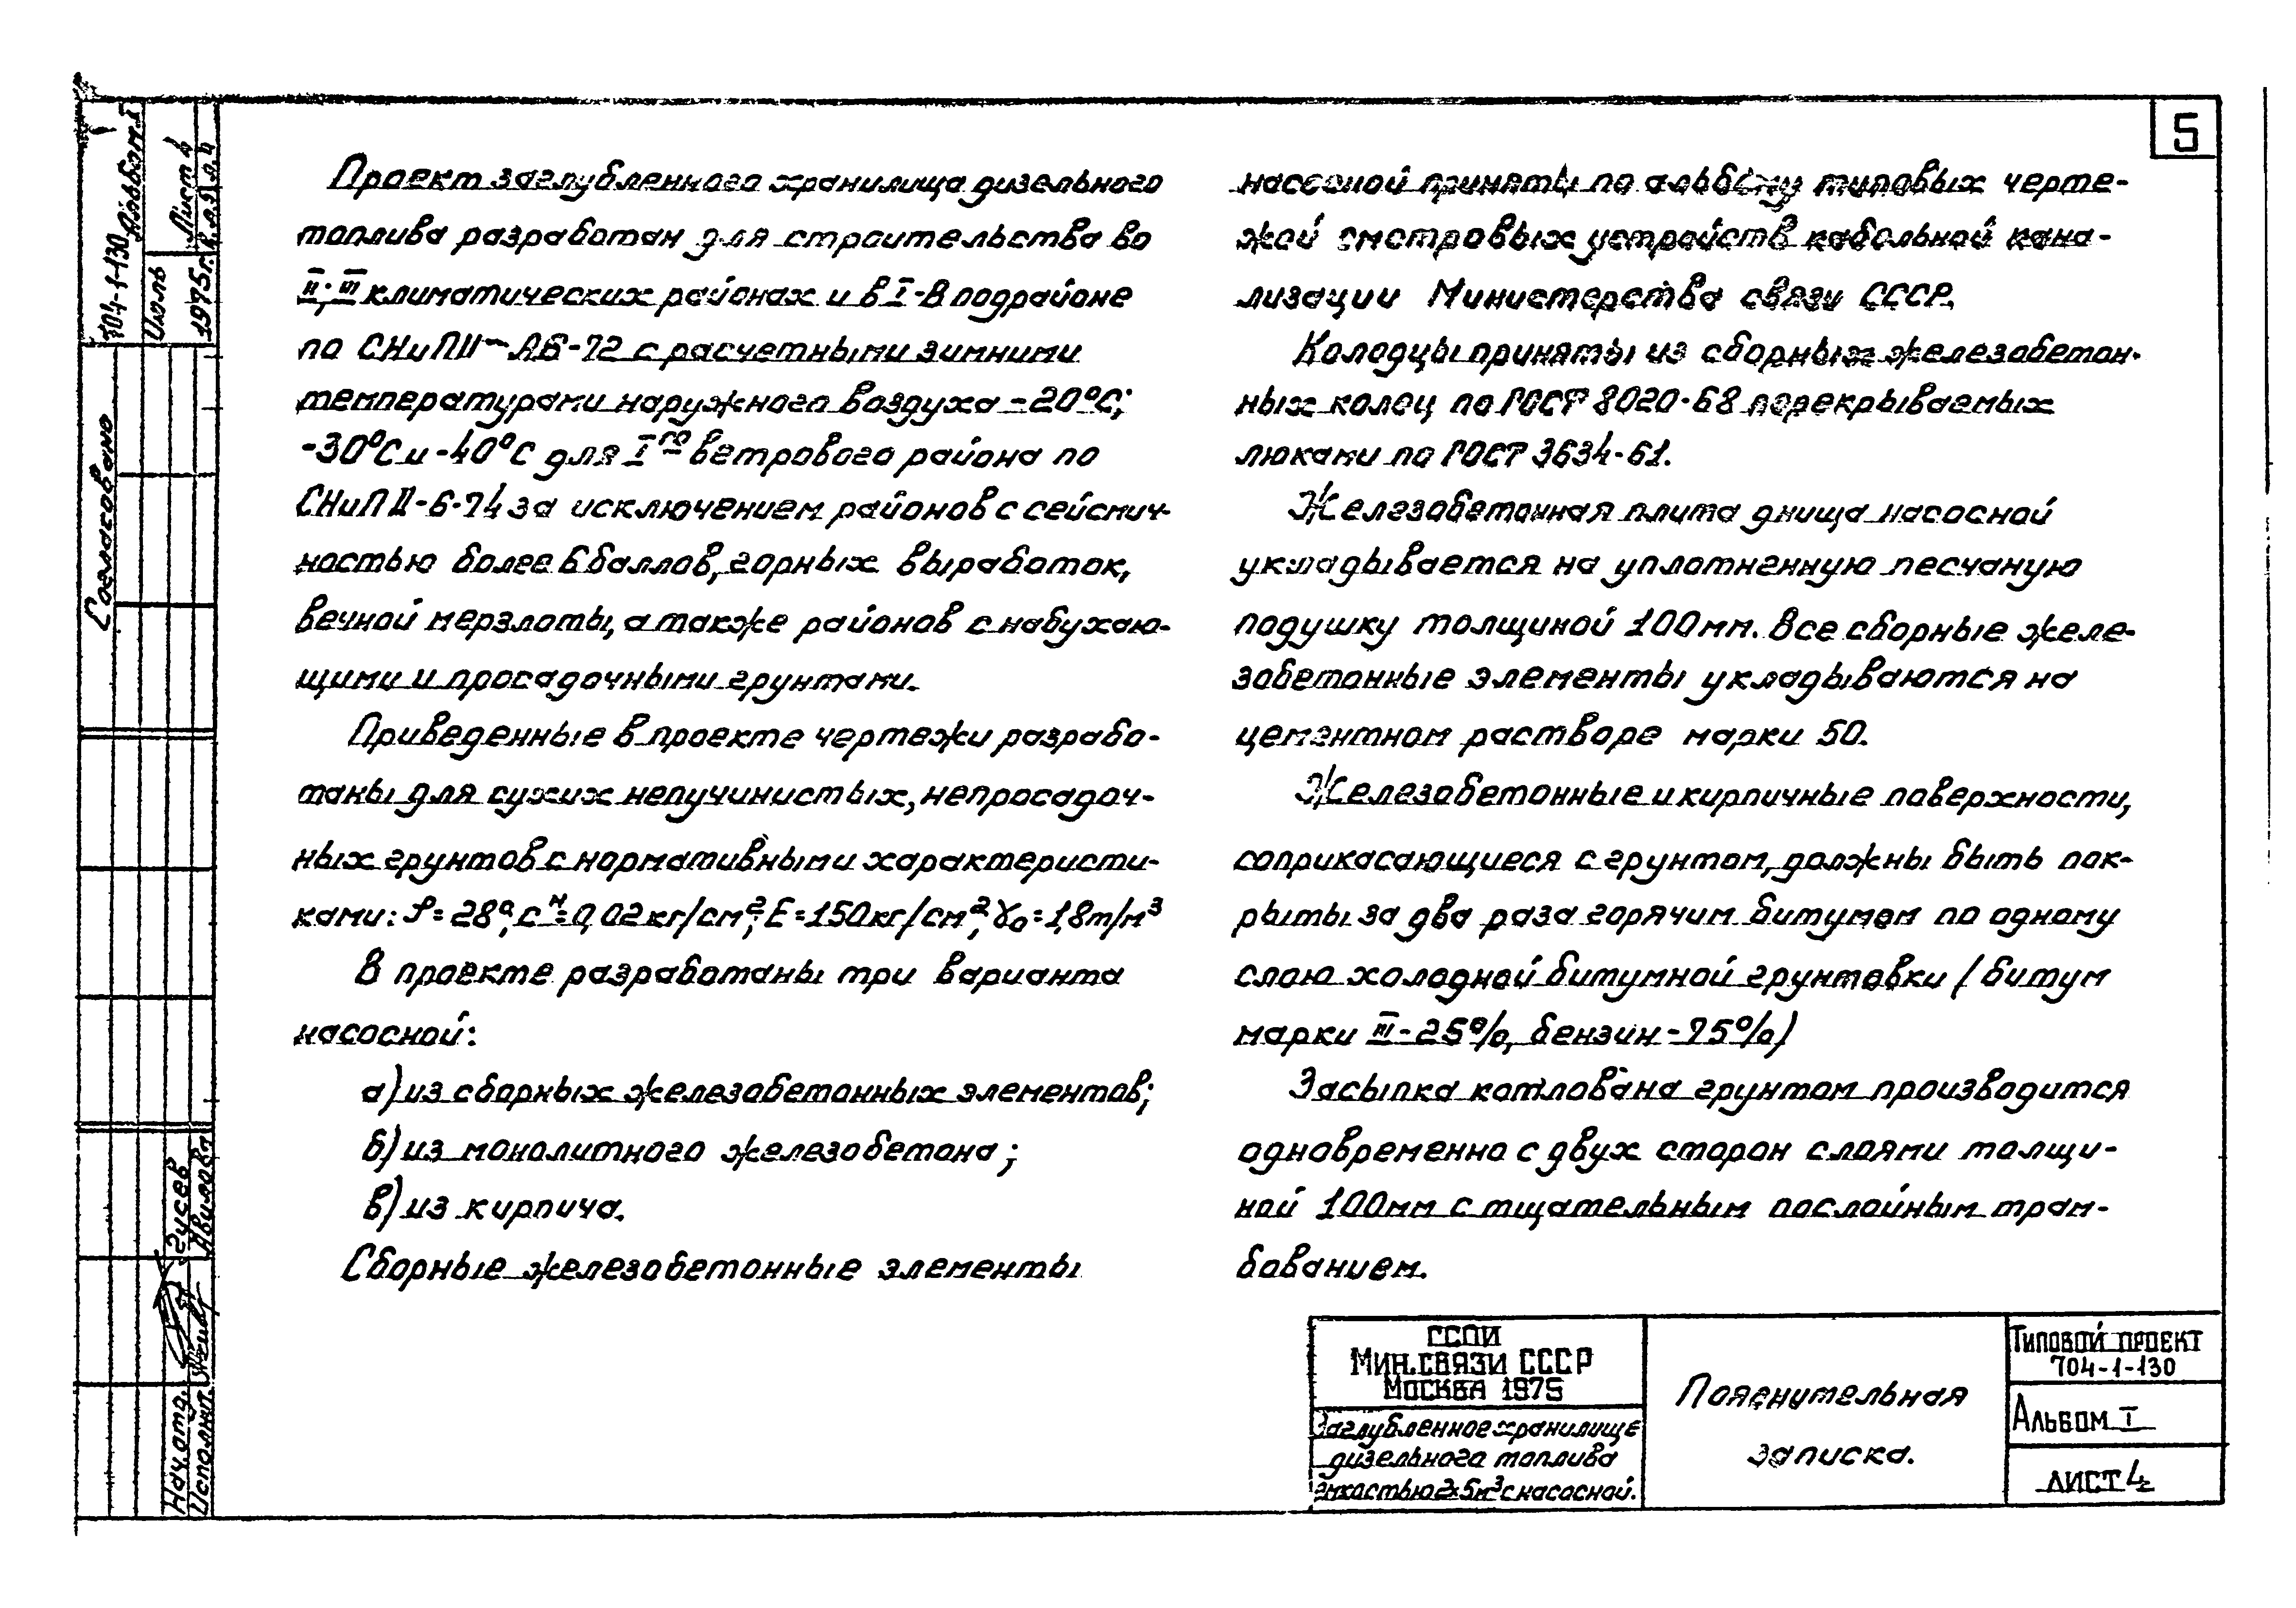 5
Проект заглубленного хранилища дизельного
топлива разработан для строительства во
II; III климатических районах и в I-В подрайоне
по СНиП II-А6-72 с расчетными зимними
температурами наружного воздуха -20°С;
-30°С и -40°С для I го ветрового района по
СНиП II-6-74 за исключением районов с сейсмич-
ностью более 6 баллов, горных выработок,
вечной мерзлоты, а также районов с набухаю-
щими и просадочными грунтами.
Приведенные в проекте чертежи разрабо-
таны для сухих непучинистых, непросадоч-
ных грунтов с нормативными характеристи-
ками: φ=28°, сᴺ=0,02кг/см²; Е=150кг/см², γ₀=1,8т/м³
В проекте разработаны три варианта
насосной:
а) из сборных железобетонных элементов;
б) из монолитного железобетона;
в) из кирпича.
Сборные железобетонные элементы
насосной приняты по альбому типовых черте-
жей смотровых устройств кабельной кана-
лизации Министерства связи СССР.
Колодцы приняты из сборных железобетон-
ных колец по ГОСТ 8020-68 перекрываемых
люками по ГОСТ 3634-61.
Железобетонная плита днища насосной
укладывается на уплотненную песчаную
подушку толщиной 100мм. Все сборные желе-
зобетонные элементы укладываются на
цементном растворе марки 50.
Железобетонные и кирпичные поверхности,
соприкасающиеся с грунтом, должны быть пок-
рыты за два раза горячим битумом по одному
слою холодной битумной грунтовки (битум
марки III-25%, бензин-75%)
Засыпка котлована грунтом производится
одновременно с двух сторон слоями толщи-
ной 100мм с тщательным послойным трам-
бованием.
ГСПИ
Мин.связи СССР
Москва 1975
Заглубленное хранилище
дизельного топлива
емкостью 2×5м³ с насосной.
Пояснительная
записка.
Типовой проект
704-1-130
Альбом I
Лист 4
704-1-130 Альбом I
Июль Лист 4
1975г.
Согласовано
Нач.отд. Гусев
Исполнил